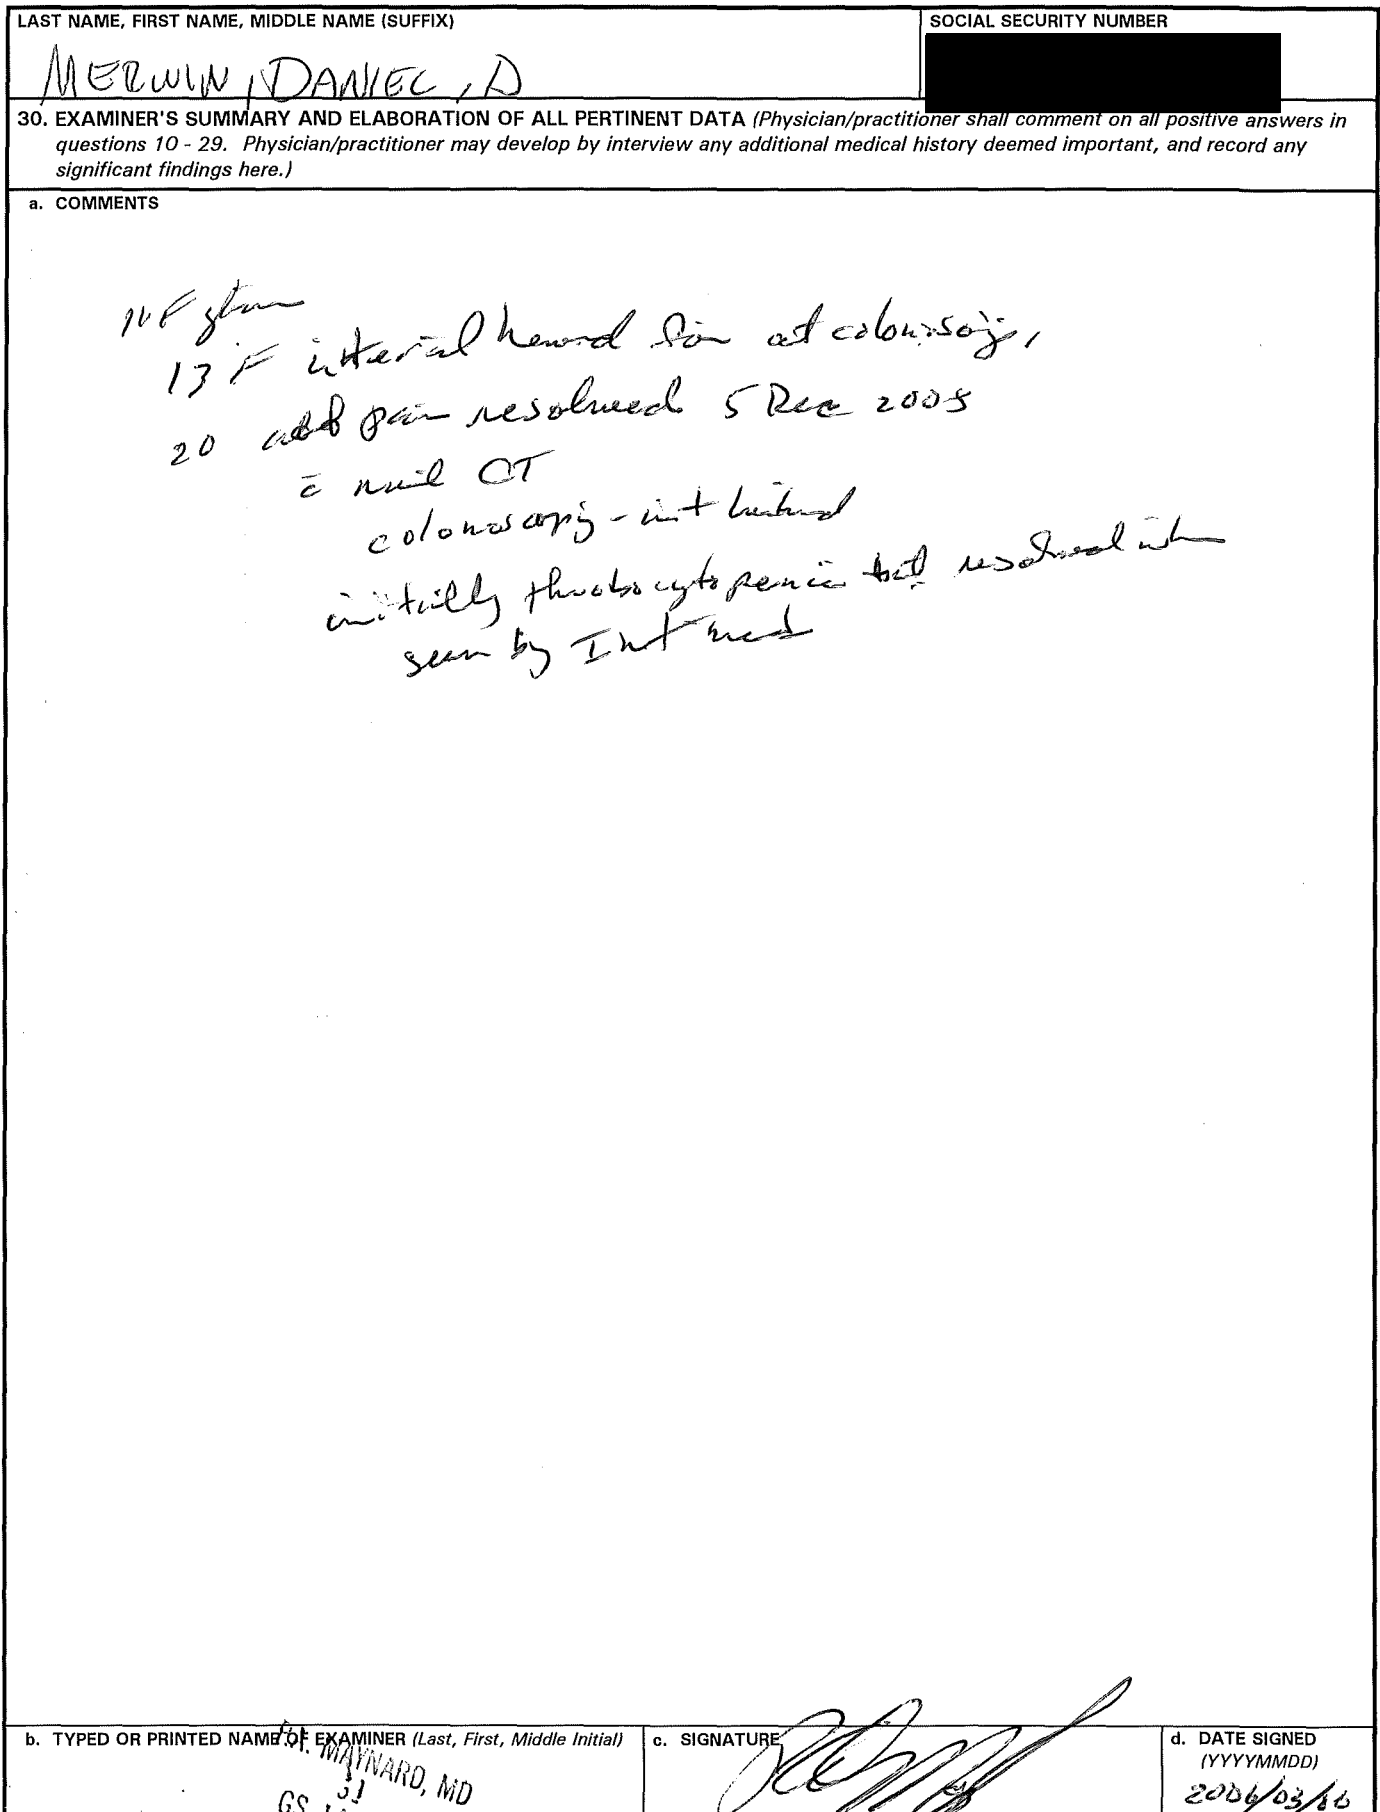 LAST NAME, FIRST NAME, MIDDLE NAME (SUFFIX)
SOCIAL SECURITY NUMBER
MERWIN, DANIEL, D
30. EXAMINER'S SUMMARY AND ELABORATION OF ALL PERTINENT DATA (Physician/practitioner shall comment on all positive answers in
questions 10 - 29. Physician/practitioner may develop by interview any additional medical history deemed important, and record any
significant findings here.)
a. COMMENTS
13 F internal at
20 abd pain resolved 5 Dec 2005
c̄ CT
colonoscopy - int
initially thrombocytopenia but resolved when
seen by Int med
b. TYPED OR PRINTED NAME OF EXAMINER (Last, First, Middle Initial)
MAYNARD, MD
GS
c. SIGNATURE
d. DATE SIGNED
(YYYYMMDD)